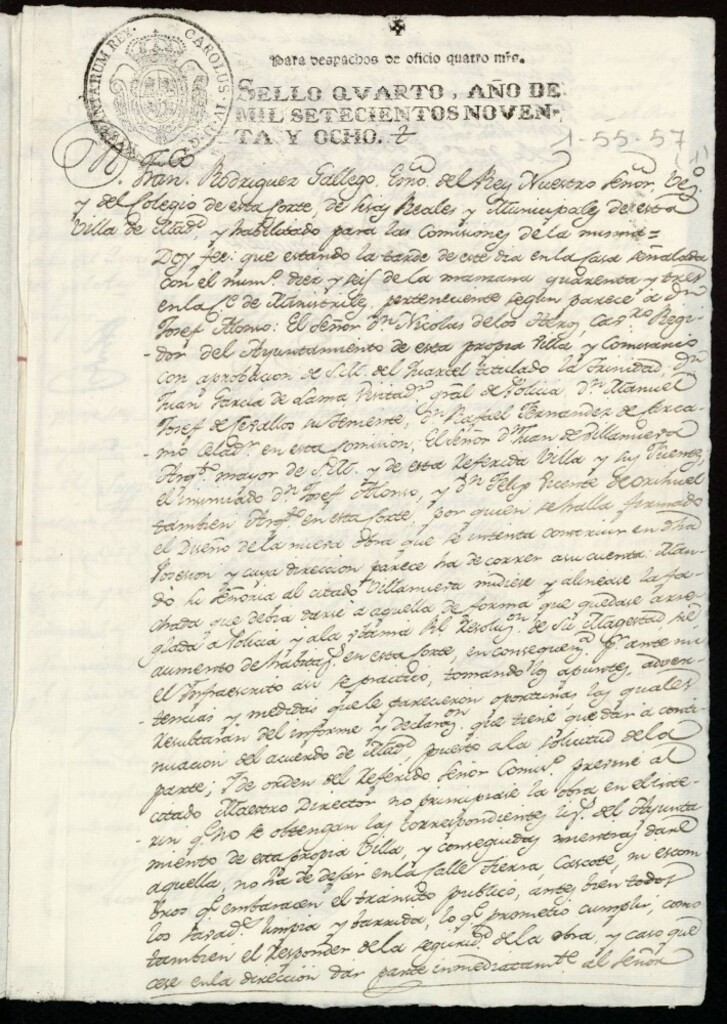 ✠
Para despachos de oficio quatro mrs.
CAROLUS IV D.G. HISPANIARUM REX.
SELLO QVARTO, AÑO DE
MIL SETECIENTOS NOVEN-
TA Y OCHO.
1-55-57
Rodriguez Gallego, Esno. del Rey Nuestro Señor,
y del Colegio de esta Corte, de los Reales y Municipales de esta
Villa de Madd. y habilitado para las Comisiones de la misma=
Doy fee: que estando la tarde de este dia en la Casa señalada
con el num.o diez y seis de la manzana quarenta y tres
en la Ce. de Ministriles, perteneciente segun parece a Dn.
Josef Alonso: El Señor Dn. Nicolas de los Heros, Regi-
dor del Ayuntamiento de esta propia Villa y Comisario
con aprobacion de S.M. del Quartel titulado la Trinidad, Dn.
Juan Garcia de Lama Visitadr. gral de Policia, Dn. Manuel
Josef de Zeballos su temiente, Dn. Rafael Fernandez de
Celadr. en esta Comision, El Señor Dn. Juan de Villanueva
Arqto. mayor de S.M. y de esta Referida Villa y sus Fuentes,
el enunciado Dn. Josef Alonso, y Dn. Felix Vicente de Orihuel
tambien Arqto. en esta Corte, por quien se halla firmado
el Diseño de la nueva obra que se intenta construir en dha
Posesion y cuya direccion parece ha de correr a su cuenta: Man-
dó su Señoria al citado Villanueva midiese y alinease la fa-
chada que debia darse a aquella de forma que quedase arre-
glada a Policia y a la Rl. Resoluon. de Su Magestad, sre.
aumento de habitas. en esta Corte, en consequena. qe. ante mi
el Infraescrito asi se practicó, tomando los apuntes, adver-
tencias y medidas que le parecieron oportunas, las quales
Resultarán del informe y Declaraon. que tiene que dar a conti-
nuacion del acuerdo de Madd. puesto a la solicitud de la
parte; Y de orden del Referido Señor Comiso. previne al
citado Maestro Director no principiase la obra en el inte-
rin qe. no se obtengan las correspondientes lizs. del Ayunta-
miento de esta propia Villa, y conseguidas mientras dure
aquella, no ha de dejar en la Calle tierra, Cascote, ni escom-
bros qe. embarazen el tránsito publico, antes bien todos
los Savads. limpia y barrida, lo qe. prometió cumplir, como
tambien el Responder de la seguridd. de la obra, y caso que
cese en la direccion dar parte inmediatamte. al Señor